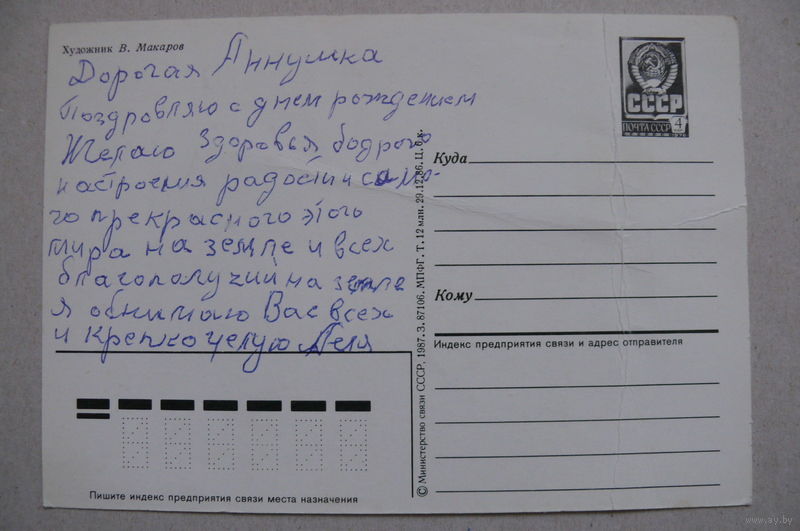 Художник В. Макаров
Дорогая Аннушка
Поздравляю с днем рождением
Желаю здоровья бодрого
настроения радости и само-
го прекрасного этого
мира на земле и всех
благополучий на земле
я обнимаю Вас всех
и крепко целую Леля
СССР
ПОЧТА СССР
4
1976
Куда
Кому
Индекс предприятия связи и адрес отправителя
© Министерство связи СССР, 1987. З. 87106. МПФГ. Т. 12 млн. 29.12.86. Ц. 6 к.
Пишите индекс предприятия связи места назначения
www.ay.by